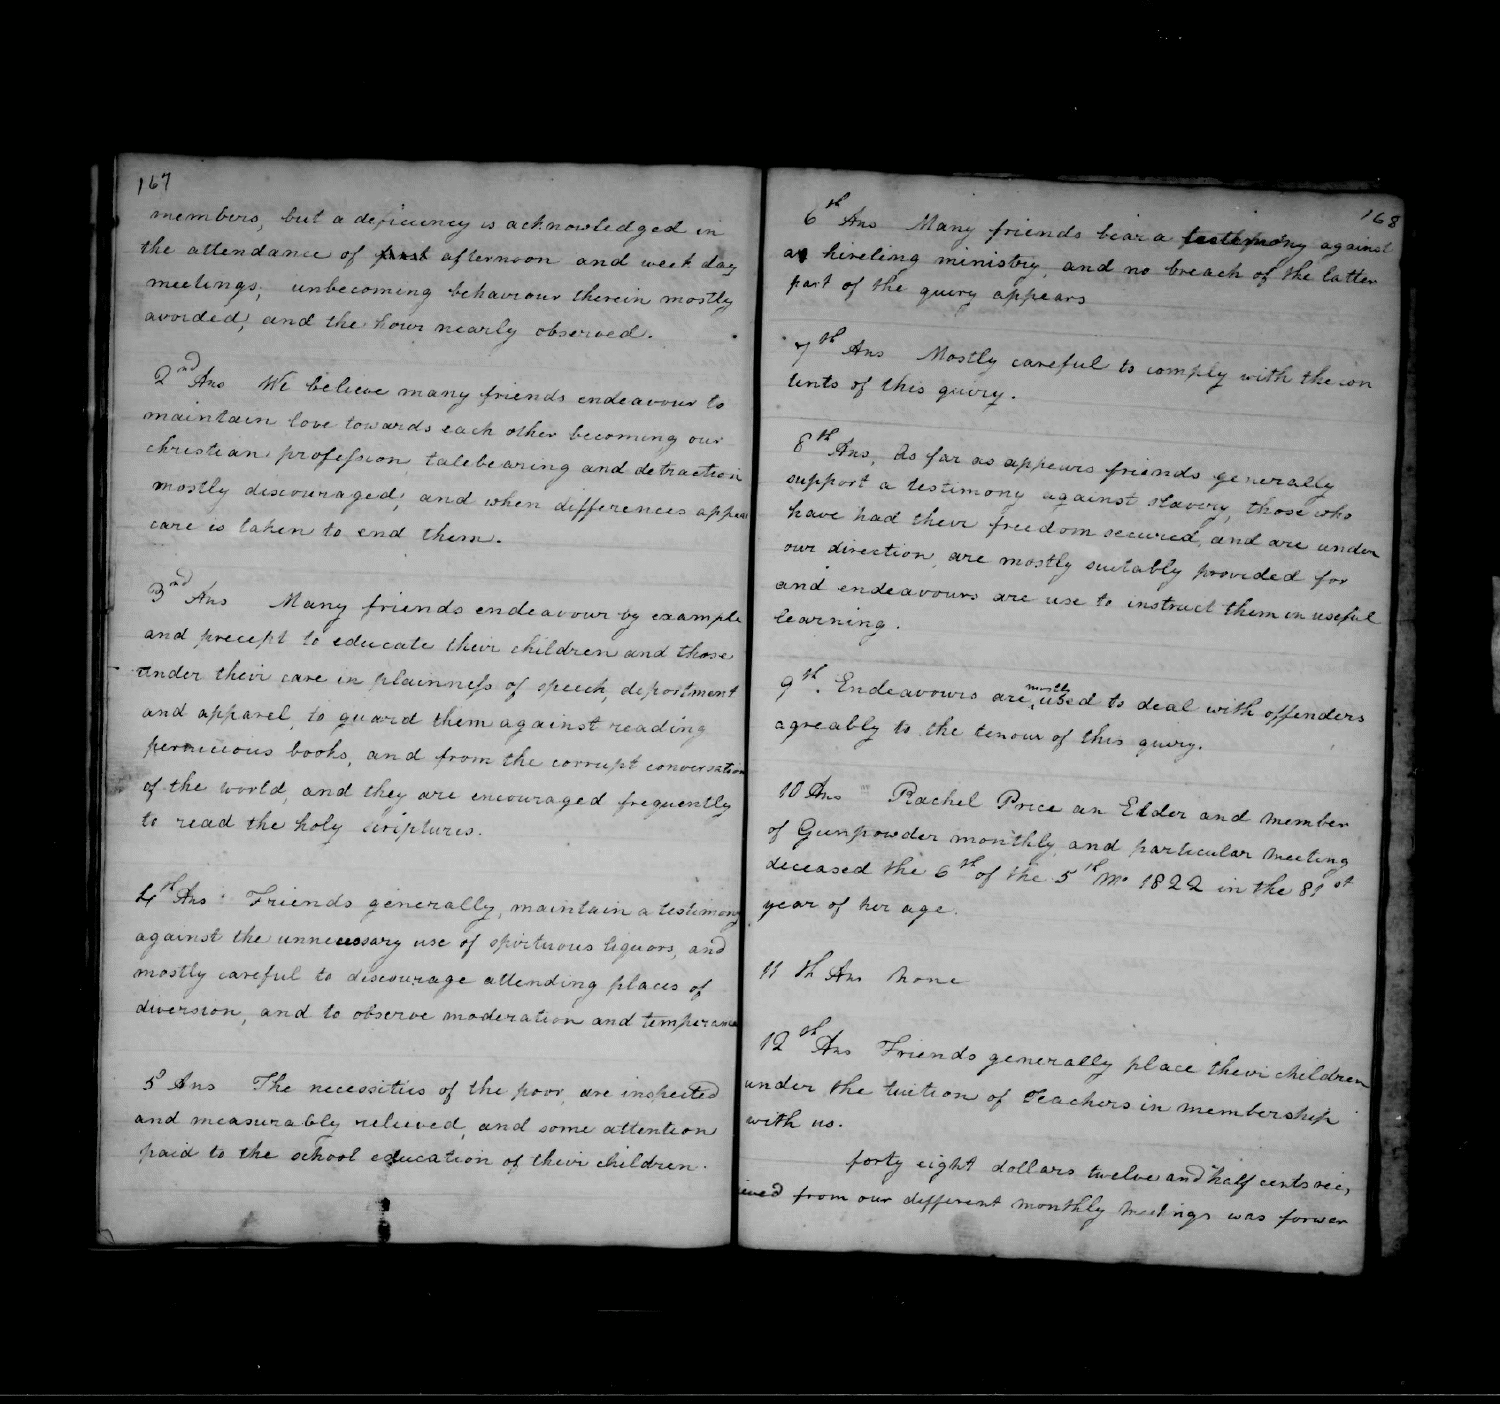 167
members, but a deficiency is acknowledged in
the attendance of first afternoon and week day
meetings, unbecoming behaviour therein mostly
avoided, and the hour nearly observed.
2nd Ans We believe many friends endeavour to
maintain love towards each other becoming our
christian profession, talebearing and detraction
mostly discouraged, and when differences appear
care is taken to end them.
3nd Ans Many friends endeavour by example
and precept to educate their children and those
under their care in plainness of speech, deportment
and apparel, to guard them against reading
pernicious books, and from the corrupt conversation
of the world, and they are encouraged frequently
to read the holy scriptures.
4th Ans Friends generally, maintain a testimony
against the unnecessary use of spirituous liquors, and
mostly careful to discourage attending places of
diversion, and to observe moderation and temperance
5 Ans The necessities of the poor, are inspected
and measurably relieved, and some attention
paid to the school education of their children.
168
6th Ans Many friends bear a testimony against
a hireling ministry, and no breach of the latter
part of the query appears
7th Ans Mostly careful to comply with the con
tents of this query.
8th Ans, As far as appears friends generally
support a testimony against slavery, those who
have had their freedom secured, and are under
our direction, are mostly suitably provided for
and endeavours are use to instruct them in useful
learning.
9th. Endeavours are mostly used to deal with offenders
agreably to the tenour of this query.
10 Ans Rachel Price an Elder and member
of Gunpowder monthly, and particular meeting
deceased the 6th of the 5th Mo 1822 in the 81st
year of her age.
11 th Ans None
12th Ans Friends generally place their children
under the tuition of Teachers in membership
with us.
forty eight dollars twelve and half cents rec,
ived from our different monthly meetings was forwar